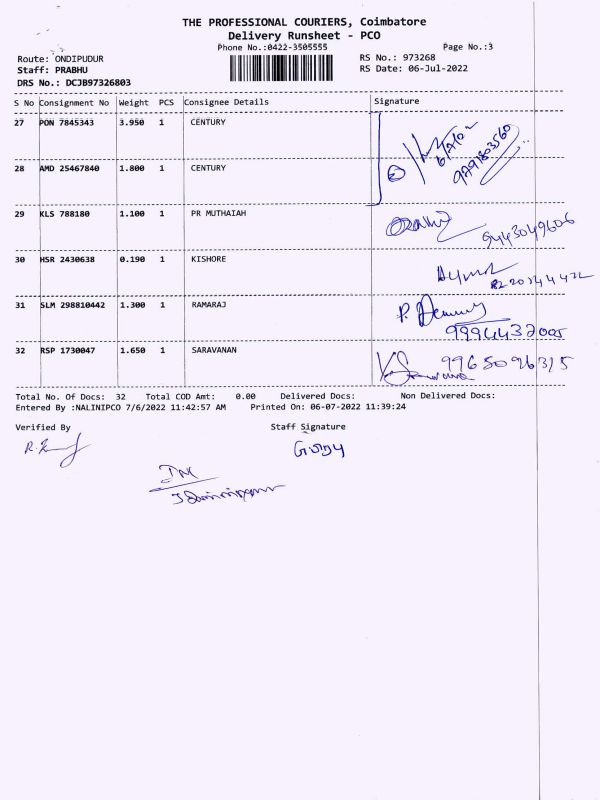 THE PROFESSIONAL COURIERS, Coimbatore
Delivery Runsheet - PCO
Phone No.:0422-3505555
Page No.:3
Route: ONDIPUDUR
RS No.: 973268
Staff: PRABHU
RS Date: 06-Jul-2022
DRS No.: DCJB97326803
S No Consignment No Weight PCS Consignee Details Signature
27 PON 7845343 3.950 1 CENTURY
28 AMD 25467840 1.800 1 CENTURY
9791803560
29 KLS 788180 1.100 1 PR MUTHAIAH
9443049606
30 HSR 2430638 0.190 1 KISHORE
31 SLM 298810442 1.300 1 RAMARAJ
9994432005
32 RSP 1730047 1.650 1 SARAVANAN
9965096315
Total No. Of Docs: 32 Total COD Amt: 0.00 Delivered Docs: Non Delivered Docs:
Entered By :NALINIPCO 7/6/2022 11:42:57 AM Printed On: 06-07-2022 11:39:24
Verified By Staff Signature